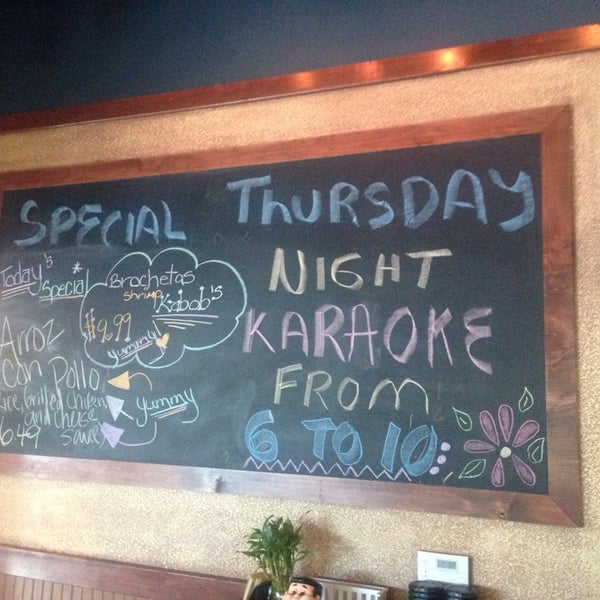 SPECIAL
Today's
Special*
Brochetas
shrimp
Kabob's
$9.99
yummy!
Arroz
con Pollo
Grilled Chicken,
and cheese
6.49 sauce
yummy
THURSDAY
NIGHT
KARAOKE
FROM
6 TO 10